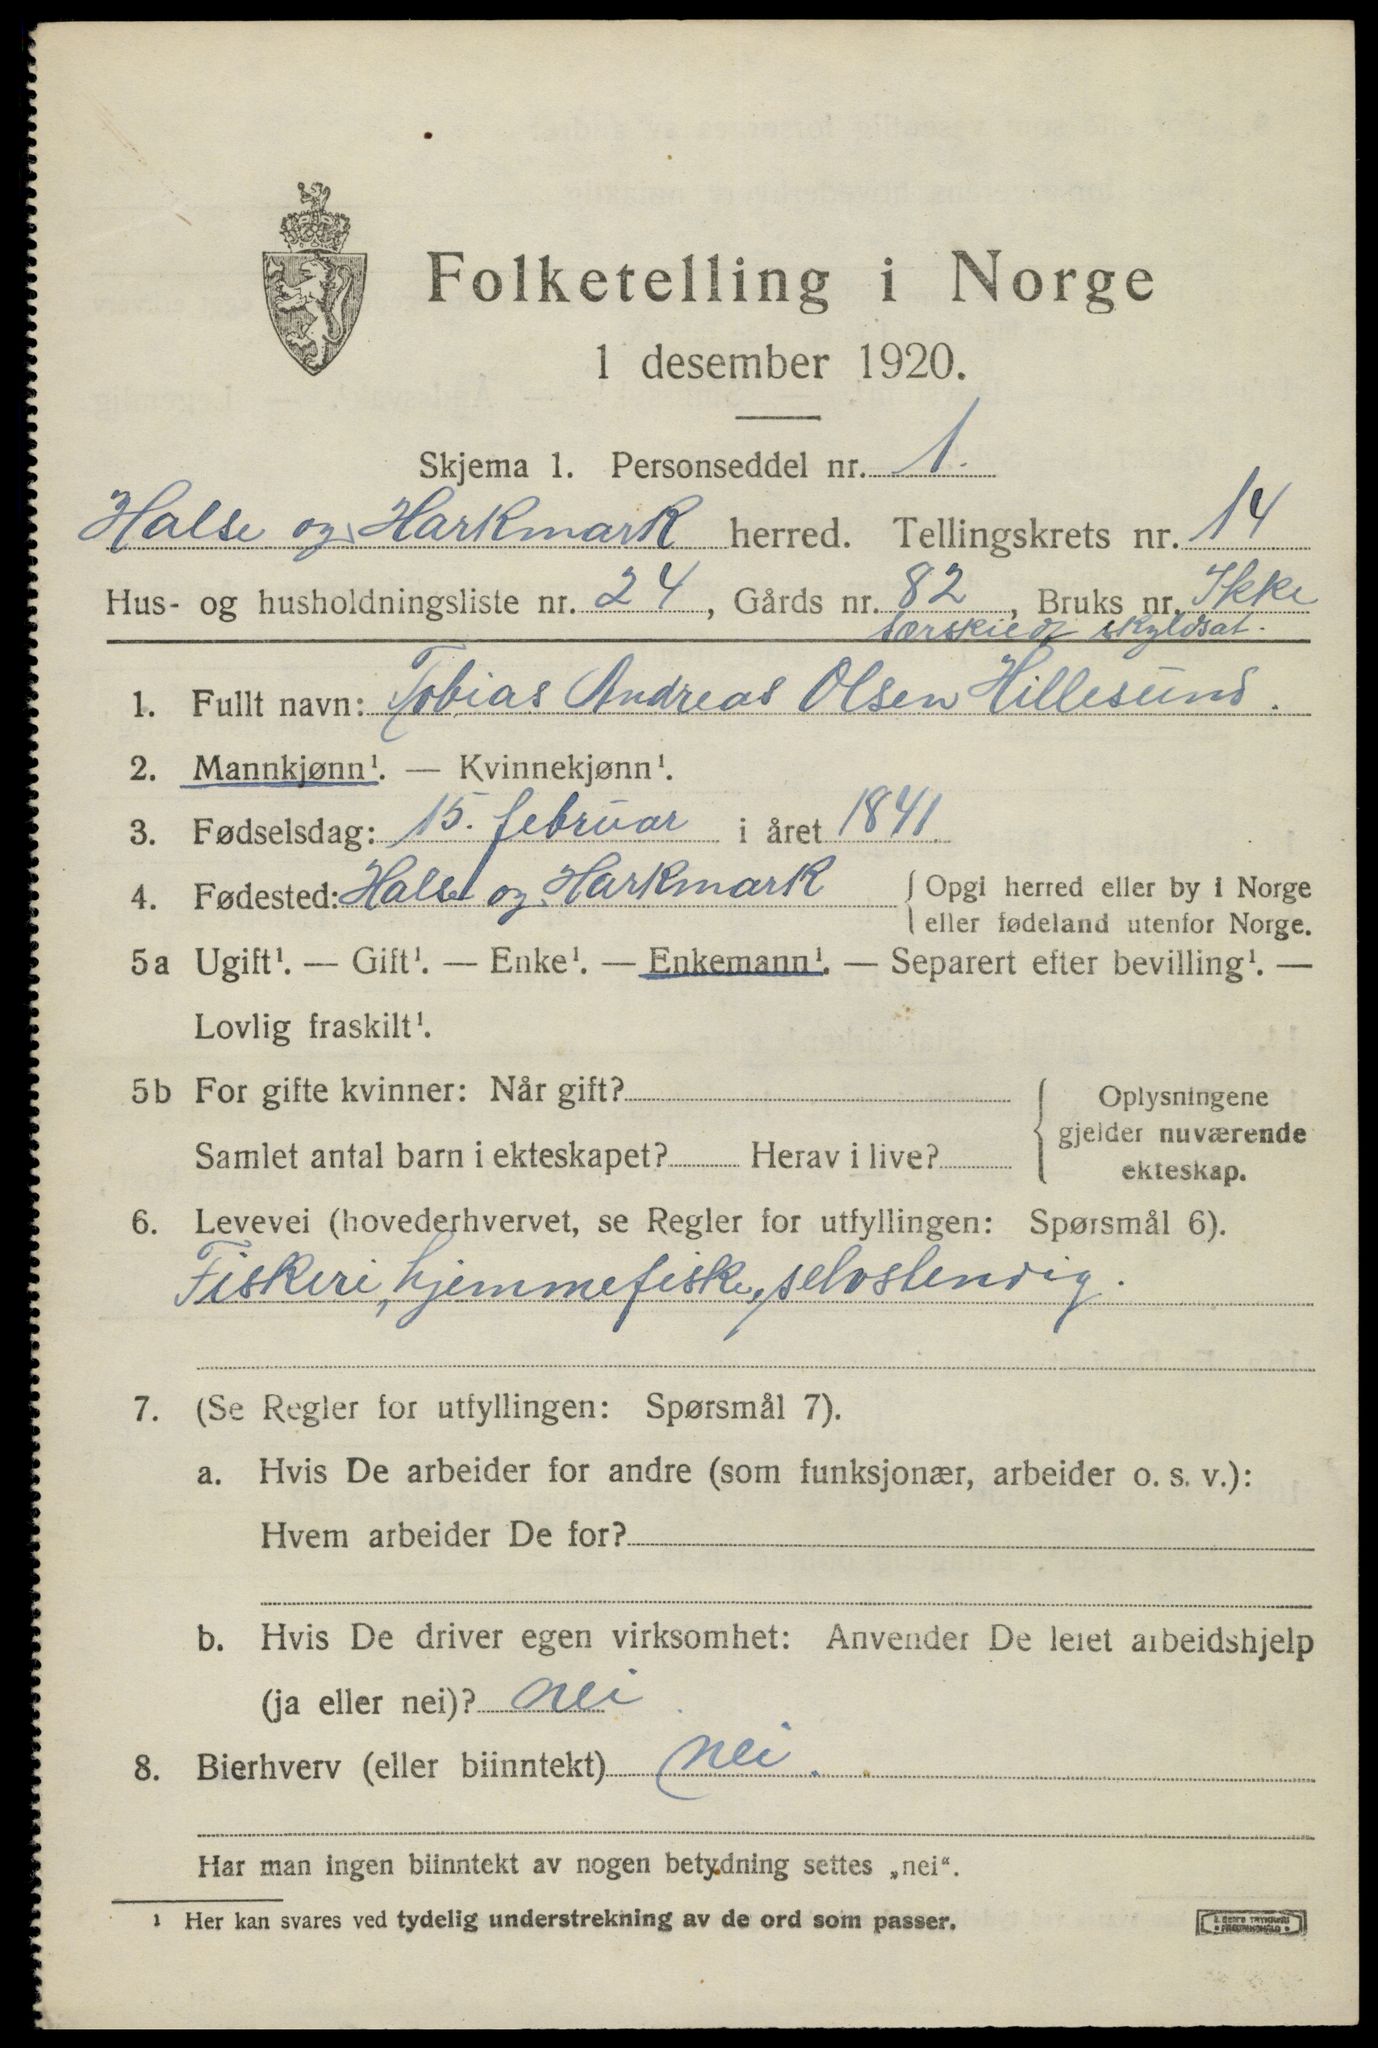 Folketelling i Norge
1 desember 1920.
Skjema 1. Personseddel nr. 1.
Halse og Harkmark herred. Tellingskrets nr. 14
Hus- og husholdningsliste nr. 24, Gårds nr. 82, Bruks nr. Ikke
særskied skyldsat.
1. Fullt navn: Tobias Andreas Olsen Hillesund.
2. Mannkjønn¹. — Kvinnekjønn¹.
3. Fødselsdag: 15. februar i året 1841
4. Fødested: Halse og Harkmark { Opgi herred eller by i Norge
eller fødeland utenfor Norge.
5a Ugift¹. — Gift¹. — Enke¹. — Enkemann¹. — Separert efter bevilling¹. —
Lovlig fraskilt¹.
5b For gifte kvinner: Når gift?
Samlet antal barn i ekteskapet? Herav i live?
{ Oplysningene
gjelder nuværende
ekteskap.
6. Levevei (hovederhvervet, se Regler for utfyllingen: Spørsmål 6).
Fiskeri, hjemmefiske, selvstendig.
7. (Se Regler for utfyllingen: Spørsmål 7).
a. Hvis De arbeider for andre (som funksjonær, arbeider o. s. v.):
Hvem arbeider De for?
b. Hvis De driver egen virksomhet: Anvender De leiet arbeidshjelp
(ja eller nei)? nei
8. Bierhverv (eller biinntekt) nei.
Har man ingen biinntekt av nogen betydning settes „nei“.
¹ Her kan svares ved tydelig understrekning av de ord som passer.